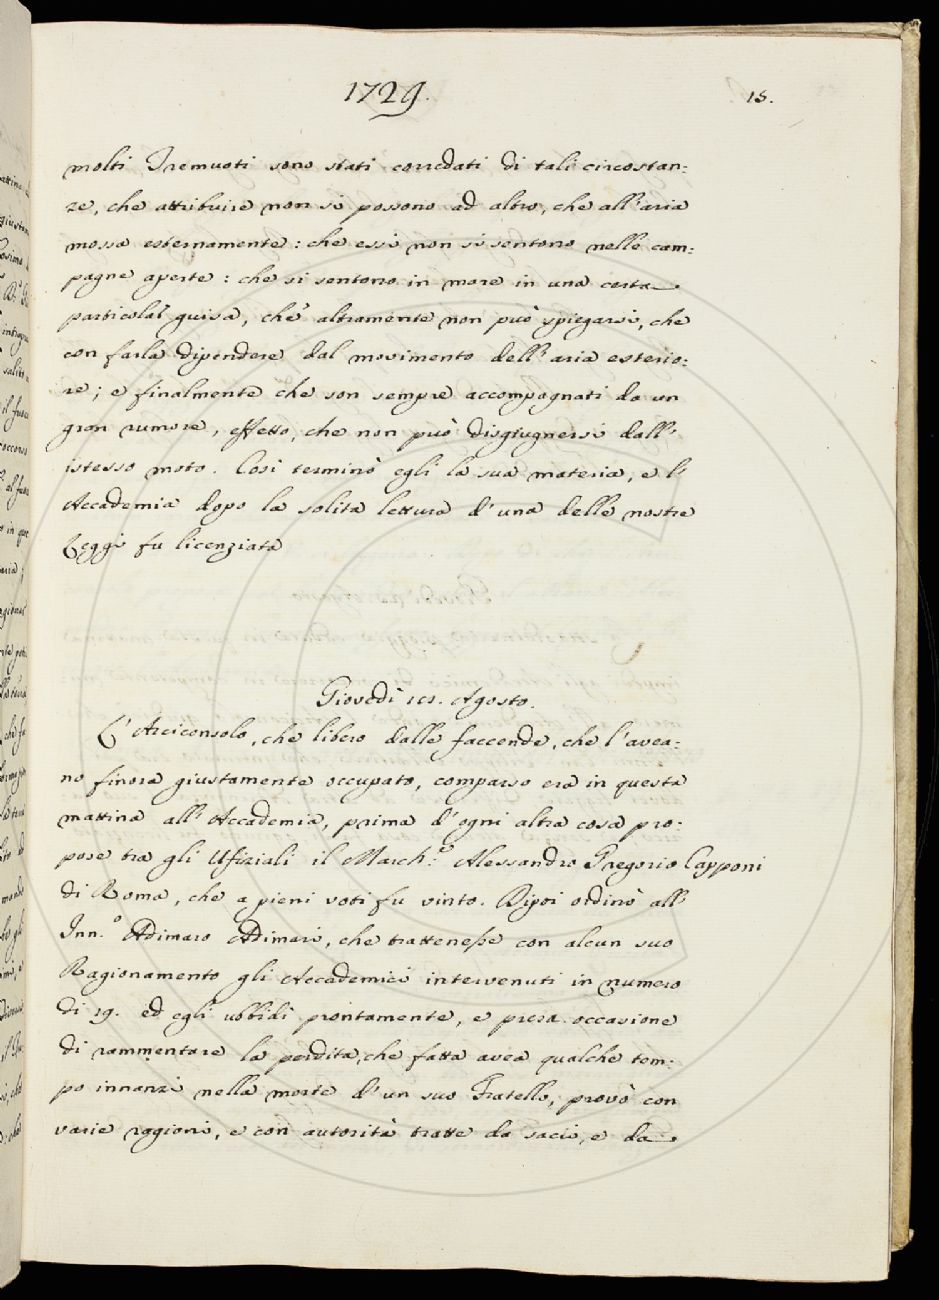 1729.
15.
molti Tremuoti sono stati corredati di tali circostan:
ze, che attribuire non si possono ad altro, che all'aria
mossa esternamente: che essi non si sentono nelle cam:
pagne aperte: che si sentono in mare in una certa
particolar guisa, che altramente non può spiegarsi, che
con farla dipendere dal movimento dell'aria esterio:
re; e finalmente che son sempre accompagnati da un
gran rumore, effetto, che non può disgiugnersi dall'
istesso moto. Così terminò egli la sua materia, e l'
Accademia dopo la solita lettura d'una delle nostre
Leggi fu licenziata
Giovedì Agosto.
L'Arciconsolo, che libero dalle faccende, che l'avea:
no finora giustamente occupato, comparso era in questa
mattina all'Accademia, prima d'ogni altra cosa pro:
pose tra gli Ufiziali il March:e Alessandro Gregorio Capponi
di Roma, che a pieni voti fu vinto. Dipoi ordinò all'
Inn.o Adimaro Adimari, che trattenesse con alcun suo
Ragionamento gli Accademici intervenuti in numero
di 19. ed egli ubbidì prontamente, e presa occasione
di rammentare la perdita, che fatta avea qualche tem:
po innanzi nella morte d'un suo Fratello, provò con
varie ragioni, e con autorità tratte da sacri, e da